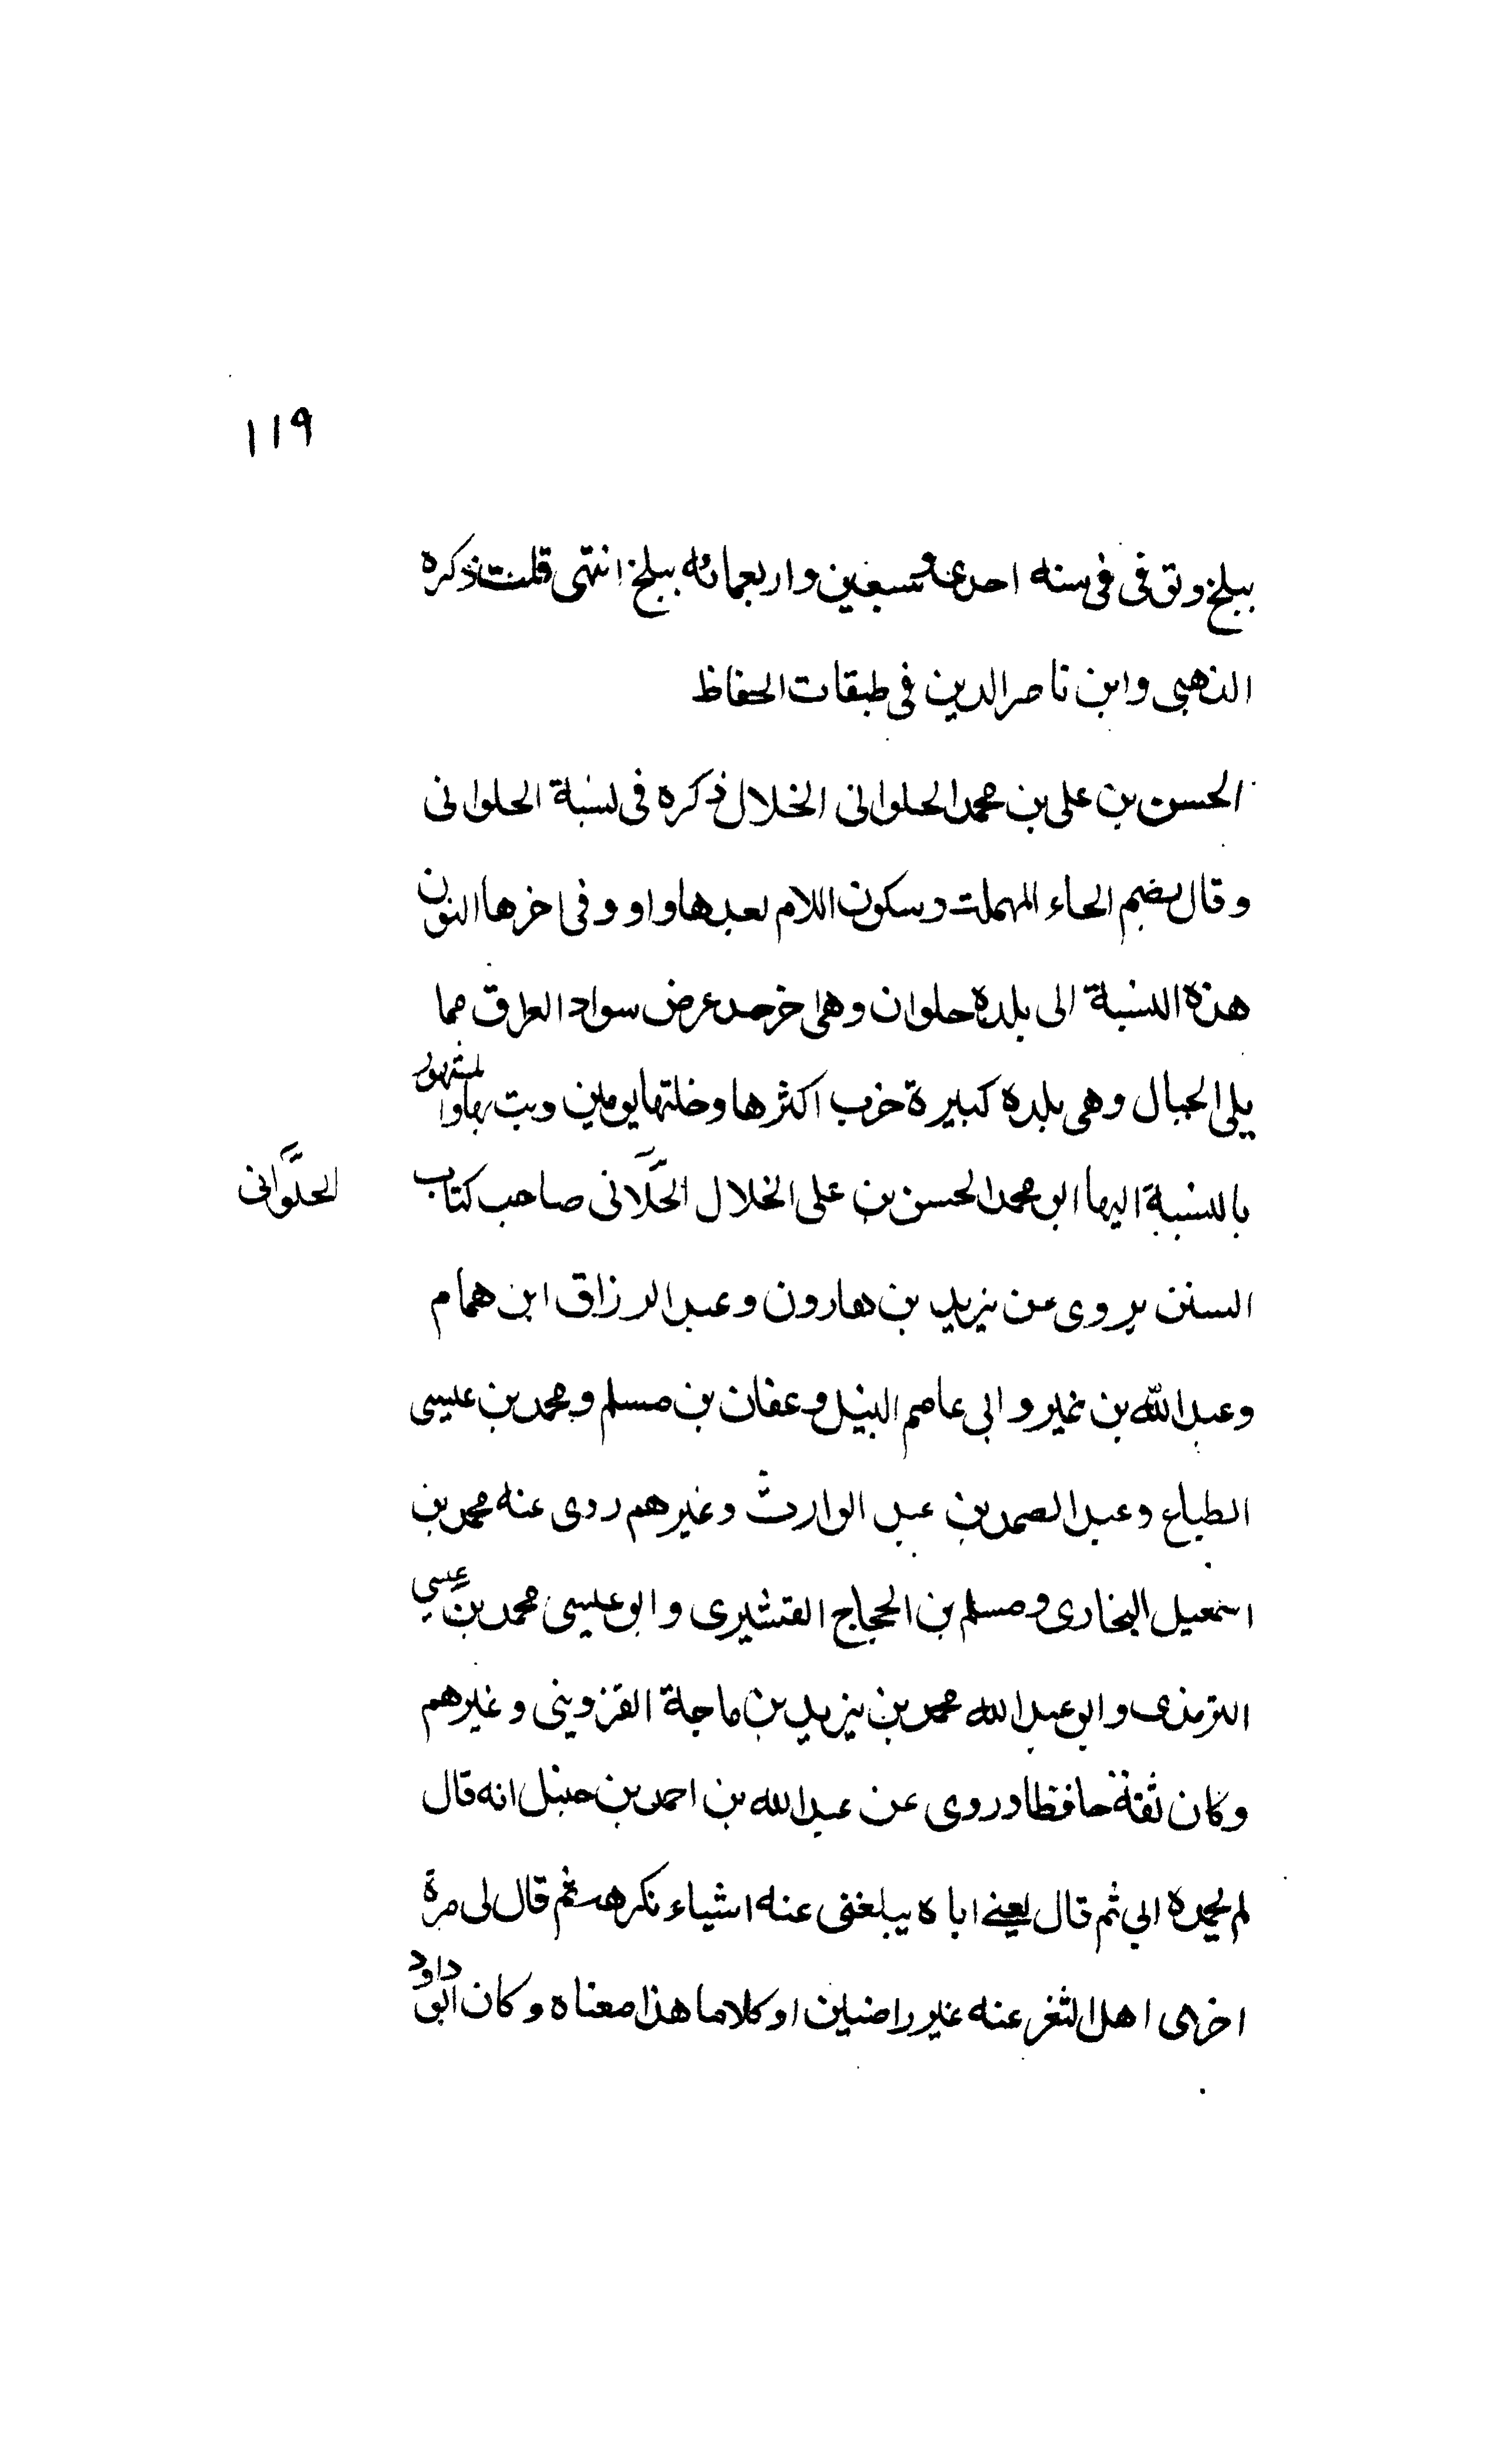 ١١٩
ببلخ وتوفى فى سنه احدى وسبعين واربعمائه ببلخ انتهى قلت ذكره
الذهبى وابن ناصر الدين فى طبقات الحفاظ
الحسن بن على بن محمد الحلوانى الخلال ذكره فى نسبة الحلوانى
وقال بضم الحاء المهملة وسكون اللام بعدها واو وفى اخرها النون
هذه النسبة الى بلده حلوان وهى اخر حد عرض سواد العراق مما
يلى الجبال وهى بلده كبيرة خرب اكثرها دخلتها يومين وبت بها والمشهور
بالنسبة اليها ابو محمد الحسن بن على الخلال الحلانى صاحب كتاب
الحلوانى
السنن يروى عن يزيد بن هارون وعبد الرزاق ابن همام
وعبد الله بن نمير و ابى عاصم النبيل وعفان بن مسلم ومحمد بن عيسى
الطباع وعبد الصمد بن عبد الوارث وغيرهم روى عنه محمد بن
اسمعيل البخارى ومسلم بن الحجاج القشيرى و ابو عيسى محمد بن عيسي
الترمذى وابو عبد الله محمد بن يزيد بن ماجة القزوينى وغيرهم
وكان ثقة حافظا وروى عن عبد الله بن احمد بن حنبل انه قال
لم يحمده ابى ثم قال يعنے اباه يبلغنى عنه اشياء نكرهه ثم قال لى مرة
اخرى اهل الثغر عنه غير راضين او كلاما هذا معناه وكان ابو داود